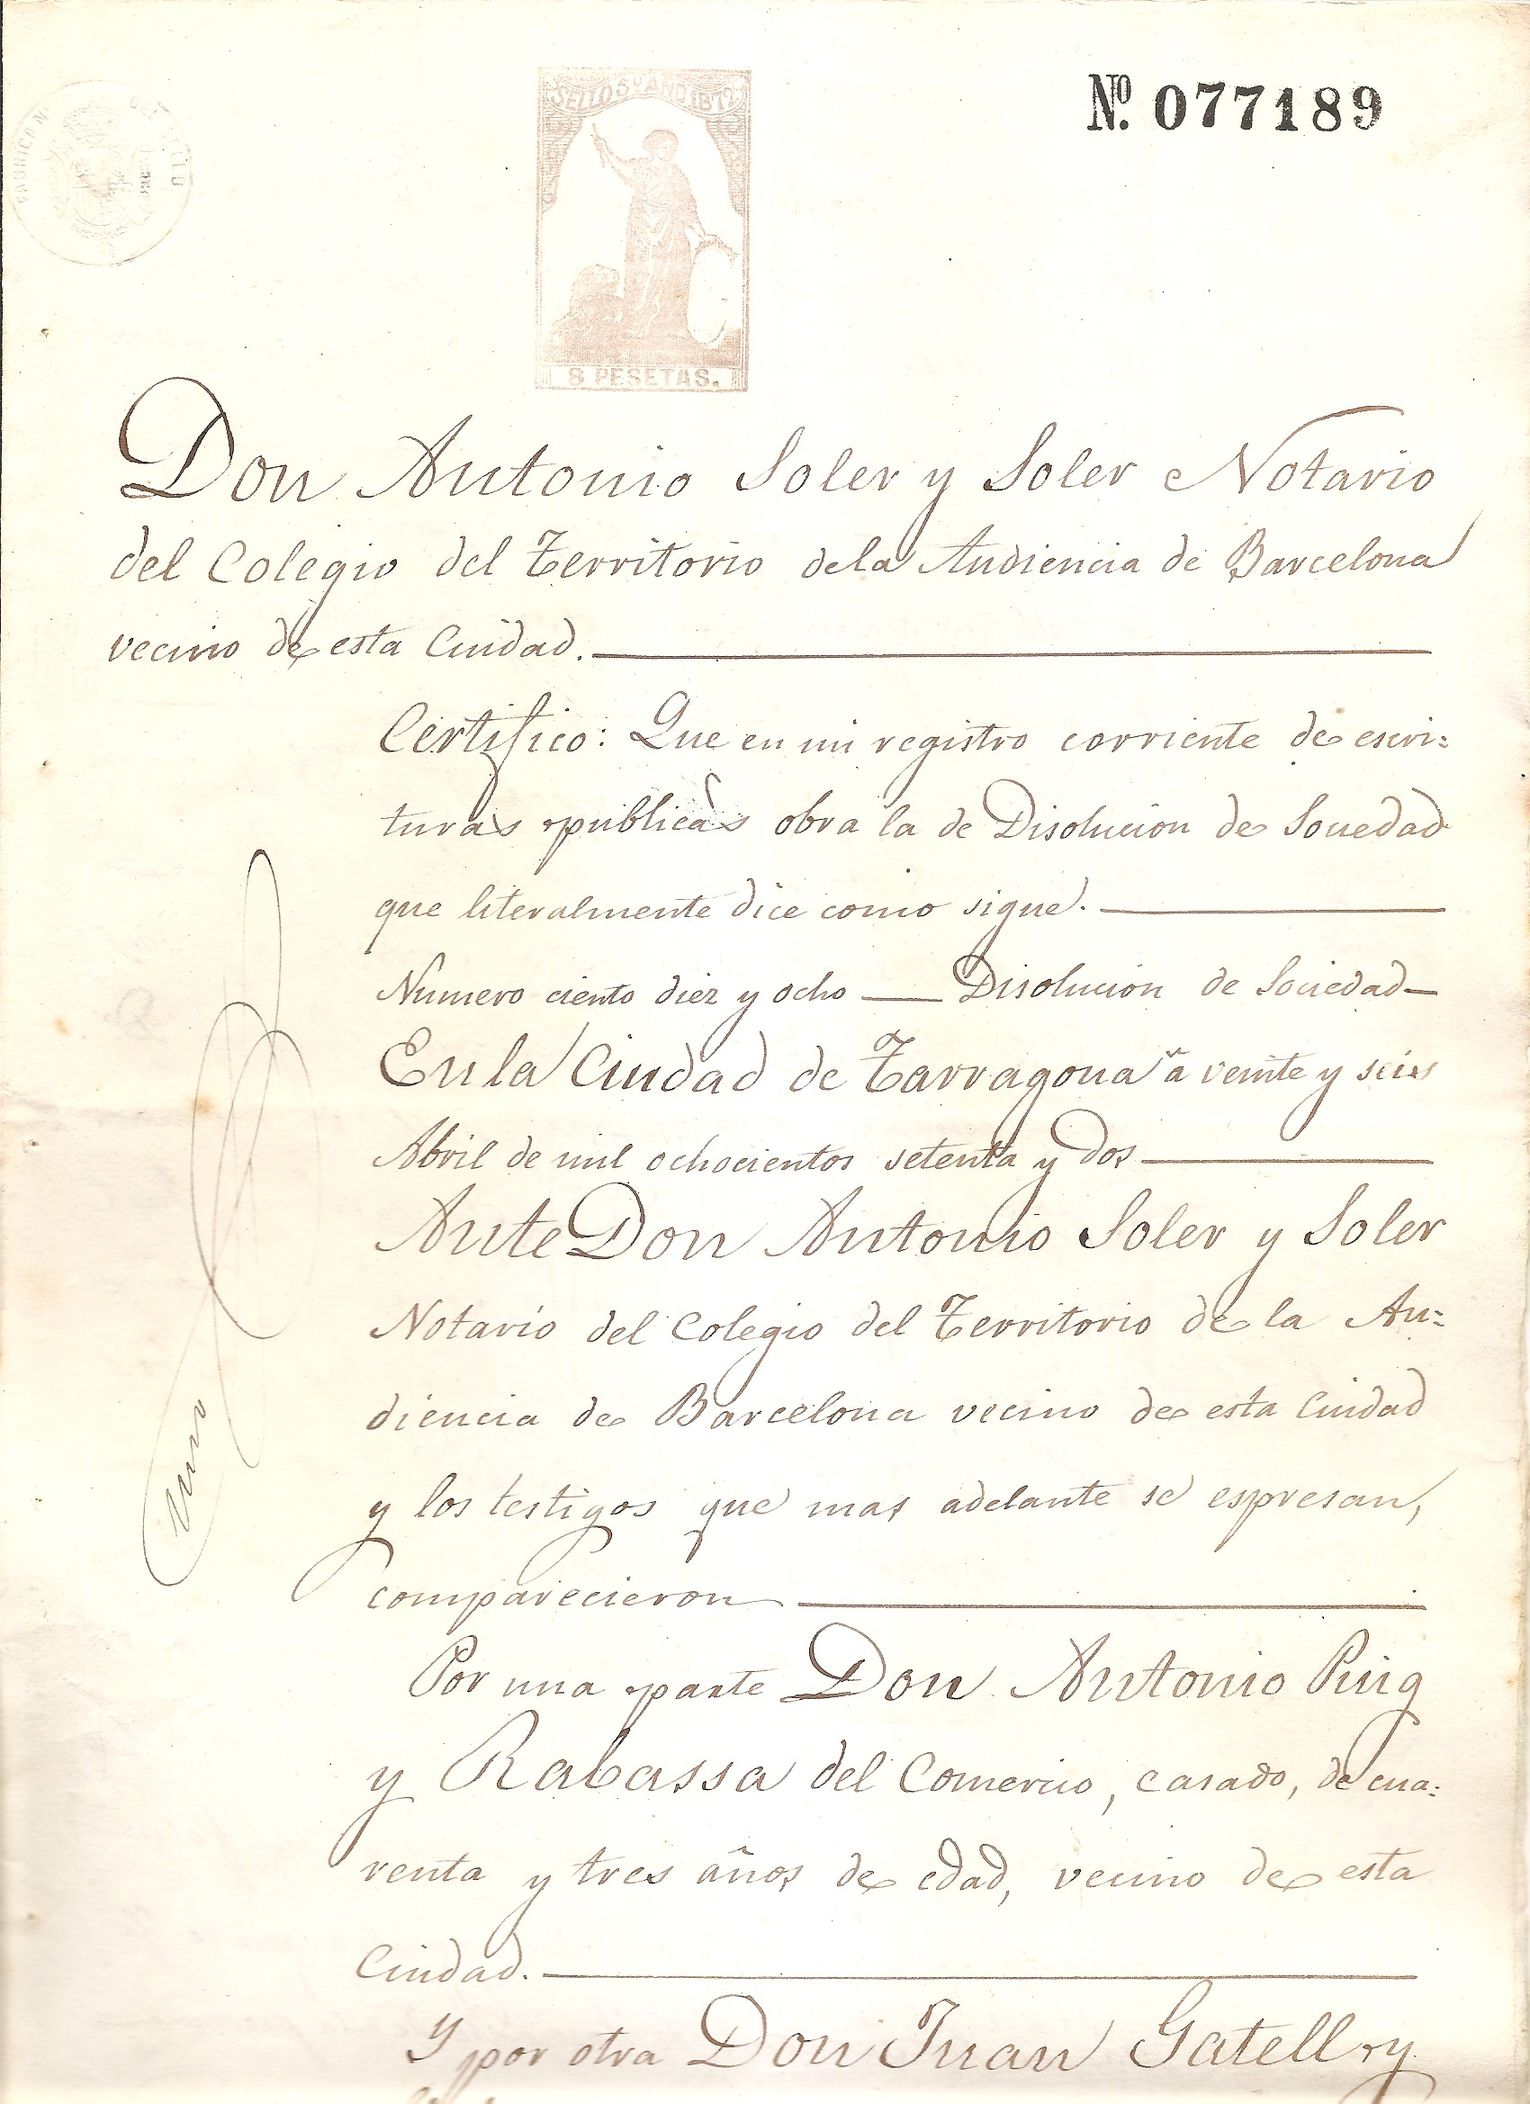 Nº. 077189
SELLO 5º AÑO 1872
8 PESETAS.
Don Antonio Soler y Soler Notario
del Colegio del Territorio dela Audiencia de Barcelona
vecino de esta Ciudad.
Certifico: Que en mi registro corriente de escri=
turas publicas obra la de Disolucion de Sociedad
que literalmente dice como sigue.
Numero ciento diez y ocho — Disolucion de Sociedad—
Enla Ciudad de Tarragona á veinte y seis
Abril de mil ochocientos setenta y dos
Ante Don Antonio Soler y Soler
Notario del Colegio del Territorio de la Au=
diencia de Barcelona vecino de esta Ciudad
y los testigos que mas adelante se espresan,
comparecieron
Por una parte Don Antonio Puig
y Rabassa del Comercio, casado, de cua=
renta y tres años de edad, vecino de esta
Ciudad.
Y por otra Don Juan Gatell y